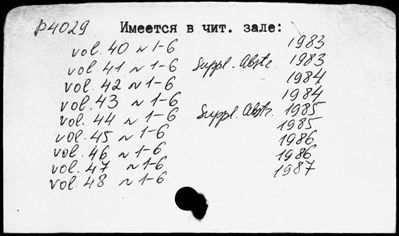 р4029 Имеется в чит. зале:
vol. 40 ~ 1-6 1983
vol. 41 ~ 1-6 Suppl. Abstr. 1983
vol. 42 ~ 1-6 1984
vol. 43 ~ 1-6 1984
vol. 44 ~ 1-6 Suppl. Abstr. 1985
vol. 45 ~ 1-6 1985
vol. 46 ~ 1-6 1986
vol. 47 ~ 1-6 1986
vol. 48 ~ 1-6 1987